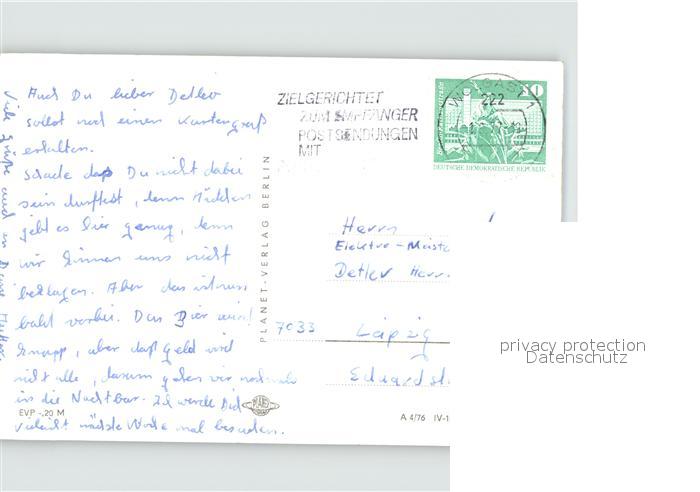 Auch Du lieber Detlev
sollst noch einen Kartengruß
erhalten.
Schade daß Du nicht dabei
sein durftest, denn Mädchen
gebt es hier genug, denn
wir können uns nicht
beklagen. Aber das ist nun
bald vorbei. Das Bier wird
knapp, aber daß Geld wird
nicht alle, darum gehen wir nochmals
in die Nachtbar. Ich werde Dich
vieleicht nächste Woche mal besuchen.
Viele Grüße auch an Deine
EVP -,20 M
PLANET-VERLAG BERLIN
PLANET
ZIELGERICHTET
ZUM EMPFÄNGER
POSTSENDUNGEN
MIT
WOLGAST 1
222
10
DEUTSCHE DEMOKRATISCHE REPUBLIK
Herrn
Elektro-Meiste
Detlev Herr
7033 Leipzig
Eduardst
A 4/76 IV-1
privacy protection
Datenschutz